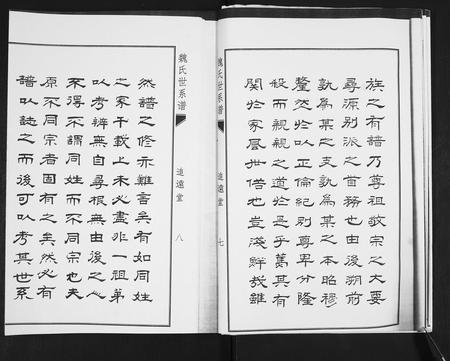 族之有譜乃尊祖敬宗之大要
尋源别派之首務也由後朔前
孰為某之支孰為某之本昭穆
釐然於以正倫紀别尊卑分隆
殺而親親之道於是乎萬其有
関於家風世俗也豈淺鮮哉雖
魏氏世系谱
追遠堂
七
魏氏世系谱
追遠堂
八
然譜之修亦難言矣有如同姓
之家千載上未必盡非一祖第
以考辨無自尋根無由後之心
不得不謂同姓而不同宗也夫
原不同宗者固有之矣然必有
譜以誌之而後可以考其世系